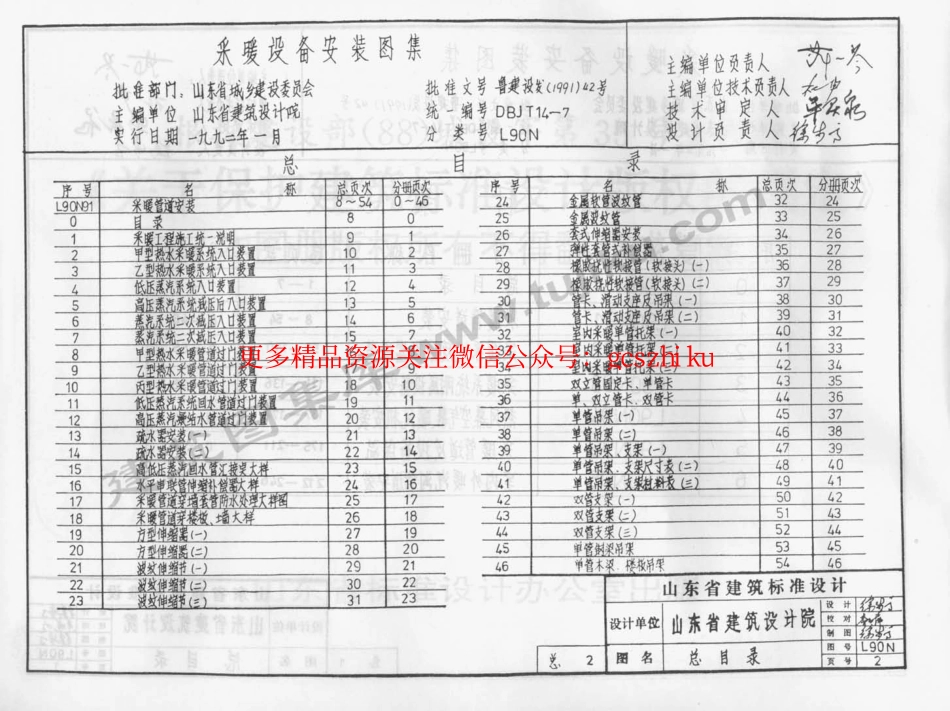 采暖设备安装图集
批准部门：山东省城乡建设委员会
主编单位 山东省建筑设计院
实行日期 一九九二年一月
批准文号 鲁建设发(1991)42号
统一编号 DBJT14-7
分类号 L90N
主编单位负责人
主编单位技术负责人
技术审定人
设计负责人
总 目 录
序号 名 称 总页次 分册页次
L90N91 采暖管道安装 8~54 0~46
0 目录 8 0
1 采暖工程施工统一说明 9 1
2 甲型热水采暖系统入口装置 10 2
3 乙型热水采暖系统入口装置 11 3
4 低压蒸汽系统入口装置 12 4
5 高压蒸汽系统减压后入口装置 13 5
6 蒸汽系统二次减压入口装置 14 6
7 蒸汽系统二次减压入口装置 15 7
8 甲型热水采暖管道过门装置
9 乙型热水采暖管道过门装置 9
10 丙型热水采暖管道过门装置 18 10
11 低压蒸汽系统回水管道过门装置 19 11
12 高压蒸汽凝结水管道过门装置 20 12
13 疏水器安装(一) 21 13
14 疏水器安装(二) 22 14
15 高低压蒸汽回水管汇接梁大样 23 15
16 水平串联管伸缩补偿器大样 24 16
17 采暖管道穿墙套管防水处理大样图 25 17
18 采暖管道穿楼板、墙大样 26 18
19 方型伸缩器(一) 27 19
20 方型伸缩器(二) 28 20
21 波纹伸缩节(一) 29 21
22 波纹伸缩节(二) 30 22
23 波纹伸缩节(三) 31 23
序号 名 称 总页次 分册页次
24 金属软管波纹管 32 24
25 金属波纹管 33 25
26 套式伸缩器安装 34 26
27 弹性套管式补偿器 35 27
28 橡胶挠性软接管(软接头)(一) 36 28
29 橡胶挠性软接管(软接头)(二) 37 29
30 管卡、滑动支座及吊架(一) 38 30
31 管卡、滑动支座及吊架(二) 39 31
32 室内采暖单管托架(一) 40 32
33 室内采暖单管托架 41 33
34 室内采暖单管托架(三) 42 34
35 双立管固定卡、单管卡 43 35
36 单、双立管卡、双管卡 44 36
37 单管吊架(一) 45 37
38 单管吊架(二) 46 38
39 单管吊架、支架(一) 47 39
40 单管吊架、支架尺寸表(二) 48 40
41 单管吊架、支架材料表(三) 49 41
42 双管支架(一) 50 42
43 双管支架(二) 51 43
44 双管支架(三) 52 44
45 单管倒梁吊架 53 45
46 单管木梁、楼板吊架 54 46
更多精品资源关注微信公众号：gcszhiku
山东省建筑标准设计
设计单位 山东省建筑设计院
图名 总目录
总 2
设计
校对
制图
图号 L90N
页号 2